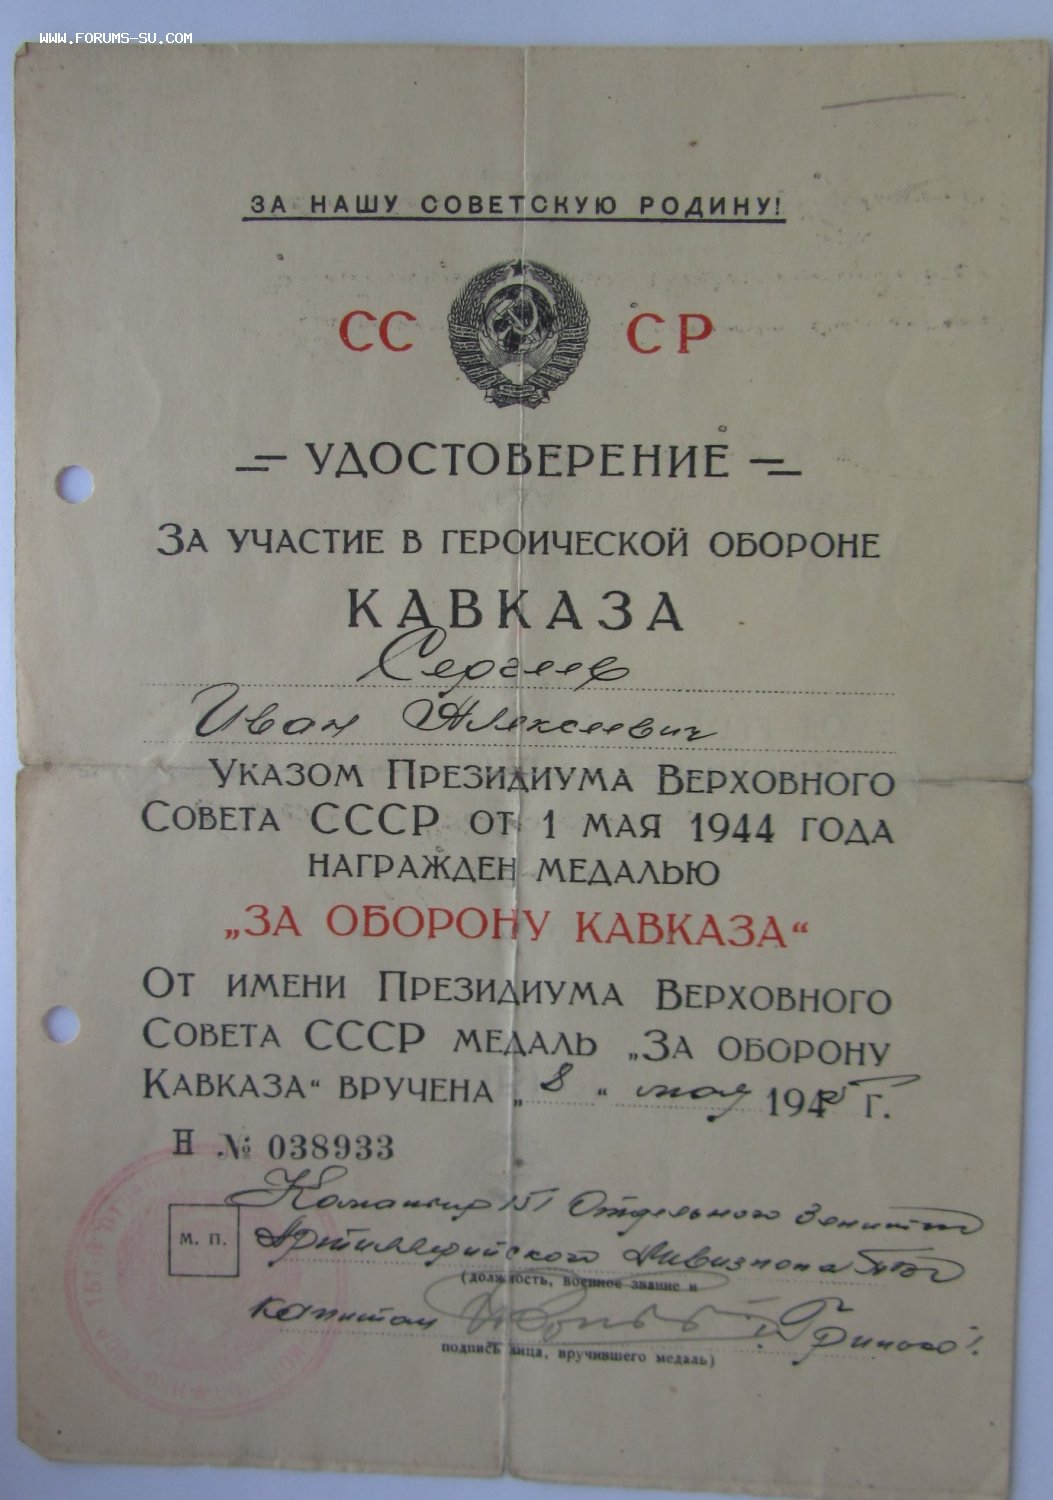 WWW.FORUMS-SU.COM
ЗА НАШУ СОВЕТСКУЮ РОДИНУ!
СС СР
УДОСТОВЕРЕНИЕ
ЗА УЧАСТИЕ В ГЕРОИЧЕСКОЙ ОБОРОНЕ
КАВКАЗА
Сергеев
Иван Алексеевич
УКАЗОМ ПРЕЗИДИУМА ВЕРХОВНОГО
СОВЕТА СССР ОТ 1 МАЯ 1944 ГОДА
НАГРАЖДЕН МЕДАЛЬЮ
„ЗА ОБОРОНУ КАВКАЗА“
ОТ ИМЕНИ ПРЕЗИДИУМА ВЕРХОВНОГО
СОВЕТА СССР МЕДАЛЬ „ЗА ОБОРОНУ
КАВКАЗА“ ВРУЧЕНА „8“ мая 1945 Г.
Н № 038933
Командир 151 Отдельного Зенитно
М. П.
Артиллерийского Дивизиона
(должность, военное звание и
капитан
подпись лица, вручившего медаль)